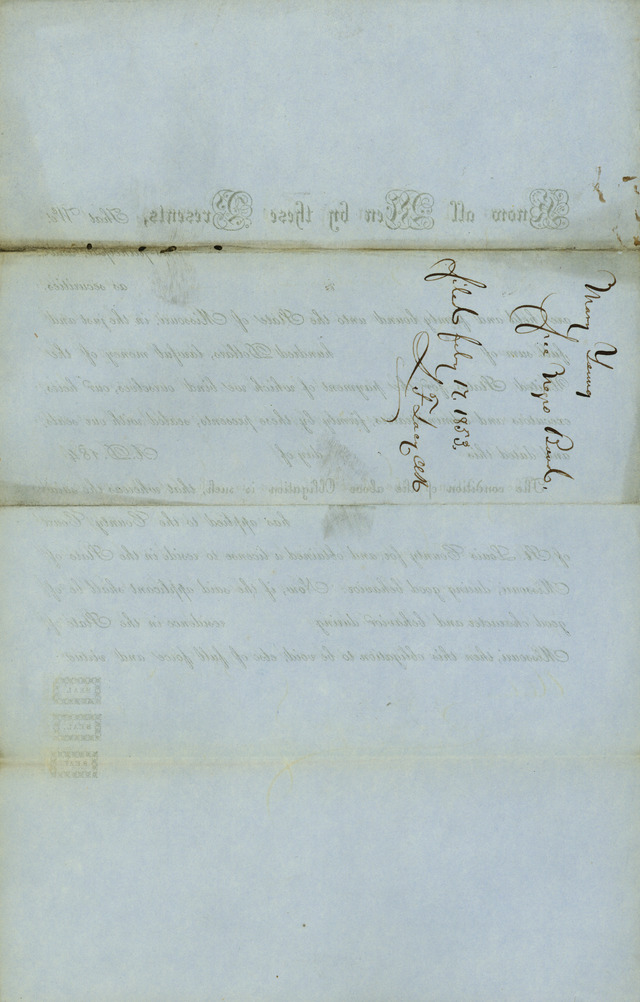 Mary Young
Negro Bond.
filed 17. 1853.
Know all Men by these Presents, That We
as securities,
are held and firmly bound unto the State of Missouri, in the just and
full sum of hundred Dollars, lawful money of the
United States, for the payment of which we bind ourselves, our heirs
executors and firmly, by these presents, sealed with our seals
dated this day of A.D. 184
The condition of the above Obligation is such, that whereas the
has applied to the County Court
of St. Louis County for, and obtained a license to reside in the State of
Missouri, during good behavior: Now, if the said applicant shall be of
good character and behavior during residence in the State of
Missouri, then this obligation to be void, else of full force and virtue
SEAL
SEAL
SEAL